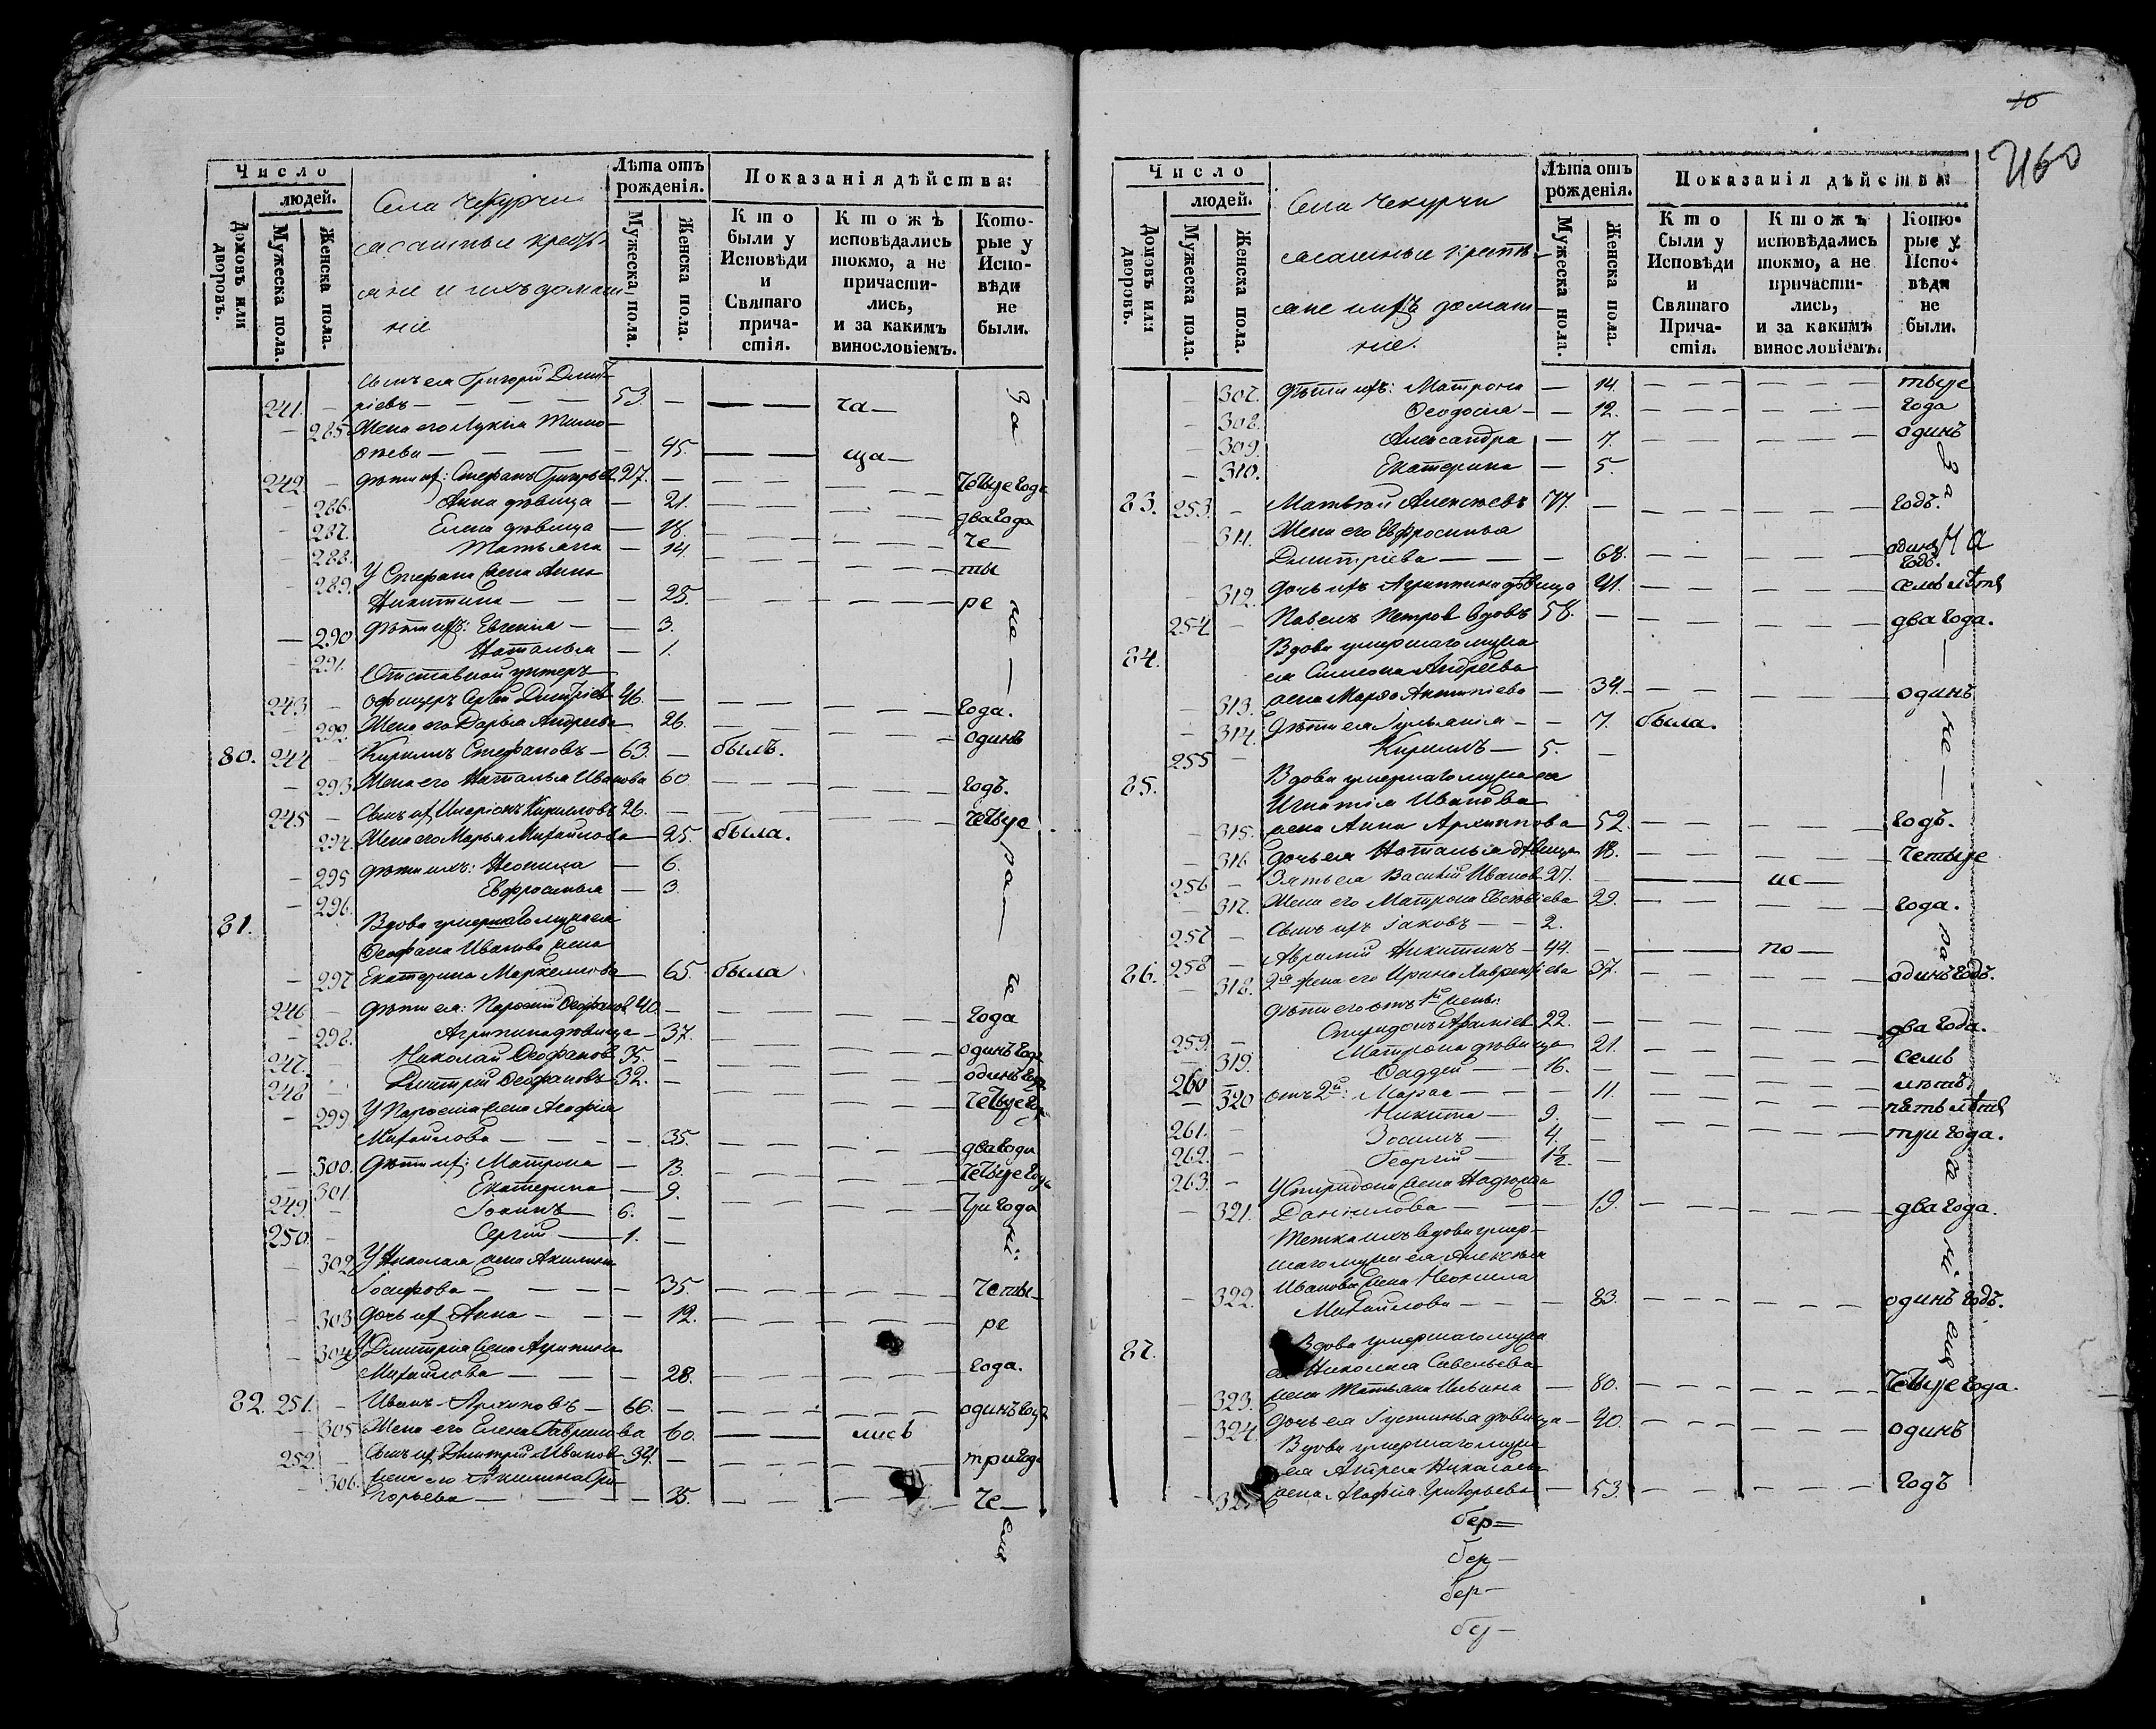 Число
людей.
Домовъ или дворовъ.
Мужеска пола.
Женска пола.
Села Чекурчи
ясашные крестья-
яне и ихъ домаш-
ніе
Лѣта отъ рожденія.
Мужеска пола.
Женска пола.
Показанія дѣйства:
Кто были у Исповѣди и Святаго причастія.
Ктожъ исповѣдались токмо, а не причастились, и за какимъ винословіемъ.
Которые у Исповѣди не были.
Сынъ ея Григорій Дмит-
241. — ріевъ — 53. — ча—
— 285. Жена его Лукія Тимо-
ѳеева — 45. — ща—
242. — Дѣти их: Стефанъ Григорьев 27. — Четыре года
— 286. Анна дѣвица — 21. два года
— 287. Елена дѣвица — 18. Че—
— 288. Татьяна — 14. ты
— 289. У Стефана жена Анна
Никитина — 25. ре
— 290 Дѣти их: Евгенія — 3.
— 291. Наталья — 1.
Отставной унтеръ
243. — офицеръ Дмитріев 46. — года.
— 292. Жена его Дарья Андреева 26. одинъ
80. 244 — Кириллъ Стефановъ — 63. — былъ.
— 293 Жена его Наталья Иванова 60. годъ.
245 — Сынъ их Иларіонъ Кириллов 26. — Четыре
— 294. Жена его Марья Михайлова — 25. была.
— 295 Дѣти ихъ: Неонила — 6.
— 296. Евфросинья — 3.
81. Вдова умершаго мужа ея
Ѳеофана Иванова жена
— 297 Екатерина Маркелова — 65. была.
246 — Дѣти ея: Ѳеофанов 40. — года
— 298. Агрипина дѣвица — 37. одинъ года
247. — Николай Ѳеофанов. 35. — одинъ годъ
248 — Дмитрій Ѳеофановъ 32. — Четыре года
— 299. жена Агафія
Михайлова — 35. два года
— 300. Дѣти их: Матрона — 13. Четыре года
— 301. Екатерина — 9. Три года
249. — 6. —
250. — Сергій — 1. —
— 302 У Николая жена Акилина
Іосифова — 35. Четы—
— 303 Дочь их Анна — 12. ре
— 304 У Дмитрія жена Агрипина
Михайлова — 28. года.
82. 251. — Иванъ Архиповъ — 66. — одинъ годъ
— 305 Жена его Елена Гаврилова 60. — лись
252. — Сынъ их Дмитрій Иванов 34. — три года
— 306. Жена его Акилина Гри-
горьева — 35. Че—
За не ра че ні: емъ
460
Число
людей.
Домовъ или дворовъ.
Мужеска пола.
Женска пола.
Села Чекурчи
ясашные кресть-
яне и ихъ домаш-
ніе.
Лѣта отъ рожденія.
Мужеска пола.
Женска пола.
Показанія дѣйства:
Кто были у Исповѣди и Святаго Причастія.
Ктожъ исповѣдались токмо, а не причастились, и за какимъ винословіемъ.
Которые у Исповѣди не были.
— 307. Дѣти ихъ: Матрона — 14. тыре
— 308. Ѳеодосія — 12. года
— 309. Александра — 7. одинъ
— 310. Екатерина — 5.
83. 253. — Матвѣй Алексѣевъ 77. — годъ.
— 311. Жена его Евфросинья
Дмитріева — 68. один годъ.
— 312. Дочь ихъ Агриппина дѣвица 41. семь лѣтъ
254 — Павелъ Петров вдовъ 58. — два года.
84. Вдова умершаго мужа
ея Симеона Андреева
— 313. жена Марѳа Антипіева — 34. одинъ
— 314. Дѣти ея Іуліанія — 7. была.
255 — Кириллъ — 5. —
85. Вдова умершаго мужа ея
Игнатія Иванова
— 315. жена Анна Архиппова — 52. годъ.
— 316 дочь ея Наталья дѣвица 18. четыре
256 — Зять ея Василій Иванов 27. — ис—
— 317. Жена его Матрона 29. года.
257 — Сынъ ихъ Іаковъ — 2.
86. 258 — Аврамій Никитинъ — 44. — по—
— 318. 2я жена его Ирина Лаврентьева 37. одинъ годъ.
Дѣти его отъ 1й жены:
259. — Спиридонъ Авраміев 22. — два года.
— 319. Матрона дѣвица 21. семь
260 — Ѳаддей — 16. — лѣтъ.
— 320 отъ 2й: Марѳа — 11. пять лѣтъ
261. — Никита — 9. — три года.
262. — Зосимъ — 4. —
263. — Георгій — 1½. —
У Спиридона жена Надежда
— 321. Даніилова — 19. два года.
Тетка ихъ вдова умер-
шаго мужа ея Алексѣя
Иванова жена Неонила
— 322. Михайлова — 83. одинъ годъ.
87. Вдова умершаго мужа
ея Николая Савельева
— 323. жена Татьяна Ильина — 80. Четыре года.
— 324. Дочь ея Іустинья дѣвица — 40. одинъ
Вдова умершаго мужа
ея Андрея Николаева
— 325 жена Агафія Григорьева — 53. годъ
За не ра ні емъ
бер—
бер—
бер—